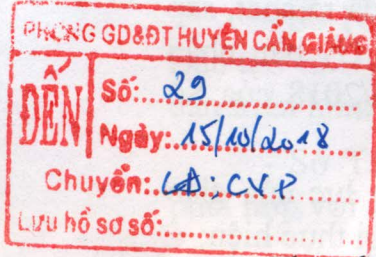 PHÒNG GD&ĐT HUYỆN CẨM GIÀNG
ĐẾN
Số: 29
Ngày: 15/10/2018
Chuyển: LĐ; CVP
Lưu hồ sơ số: